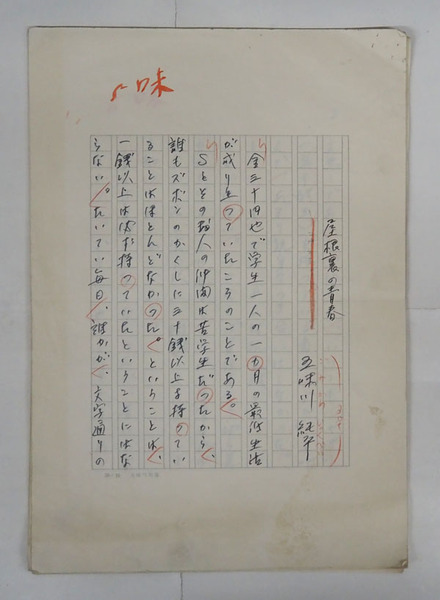 味
屋根裏の青春
五味川純平
金三十円也で学生一人の一カ月の最低生活
が成り立っていたころのことである。
Sとその数人の仲間は苦学生だったから、
誰もズボンのかくしに三十銭以上を持ってい
ることはほとんどなかった。ということは、
一銭以上は必ず持っていたということにはな
らない。たいてい毎日、誰かが、文字通りの